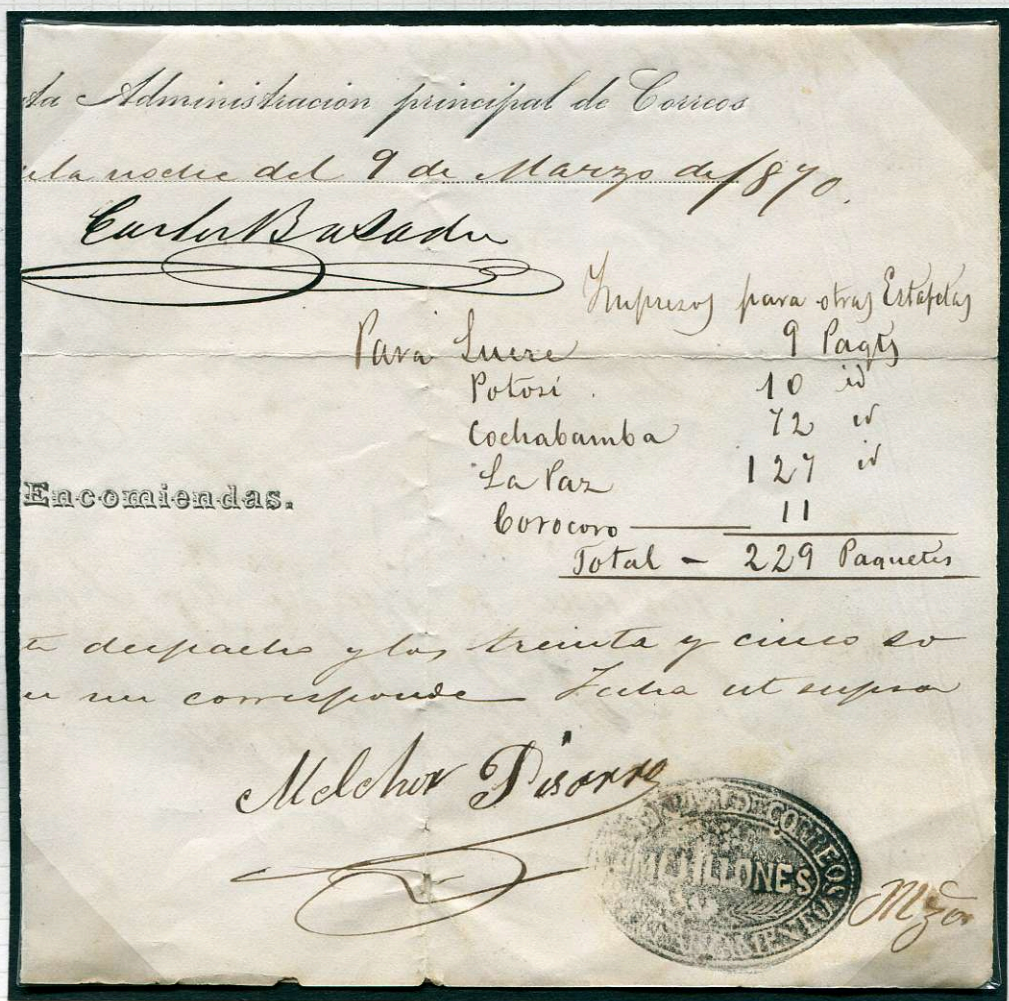 ta Administracion principal de Correos
la noche del 9 de Marzo de 1870.
Carlos Basadre
Impresos para otras Estafetas
Para Sucre 9 Paqts
Potosi . 10 id
Cochabamba 72 id
La Paz 127 id
Corocoro 11
Total - 229 Paquetes
Encomiendas.
despacho y los treinta y cinco so
corresponde Fecha ut supra
Melchor Pisarro
DE CORREOS
MEJILLONES